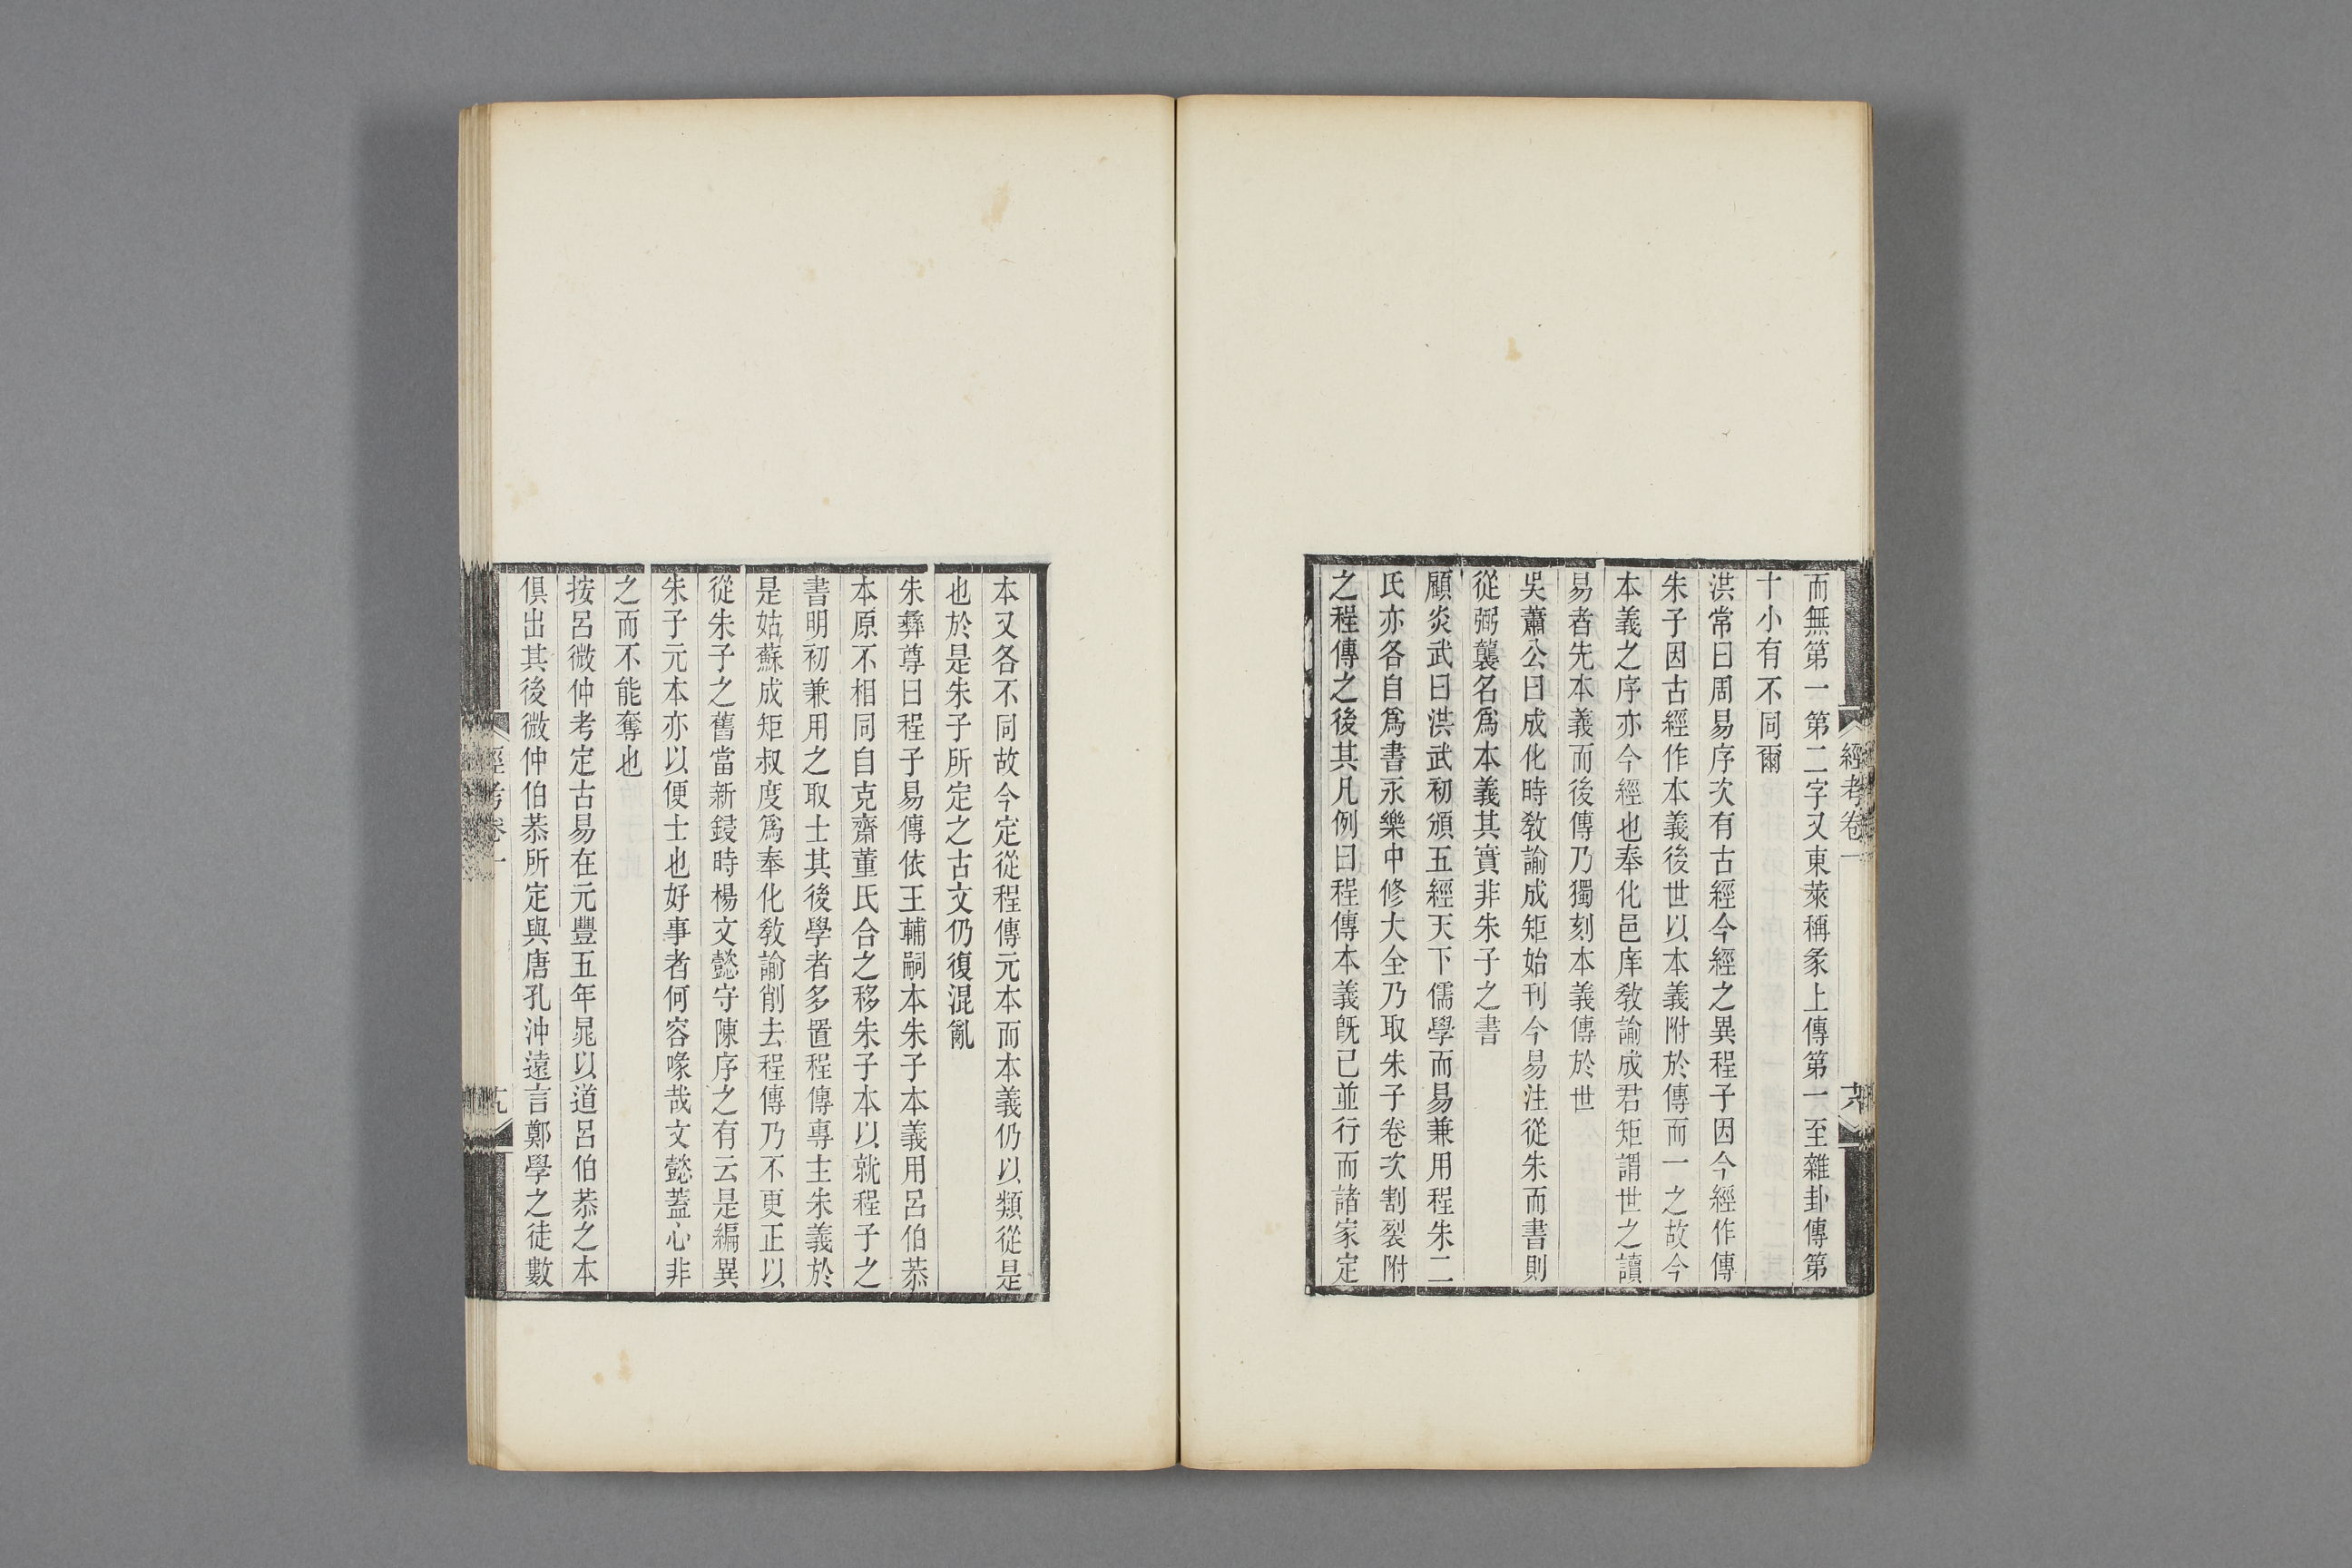 而無第一第二字又東萊稱彖上傳第一至雜卦傳第
十小有不同爾
洪常曰周易序次有古經今經之異程子因今經作傳
朱子因古經作本義後世以本義附於傳而一之故今
本義之序亦今經也奉化邑庠敎諭成君矩謂世之讀
易者先本義而後傳乃獨刻本義傳於世
吳蕭公曰成化時敎諭成矩始刊今易注從朱而書則
從弼襲名爲本義其實非朱子之書
顧炎武曰洪武初頒五經天下儒學而易兼用程朱二
氏亦各自爲書永樂中修大全乃取朱子卷次割裂附
之程傳之後其凡例曰程傳本義旣已並行而諸家定
經考卷一
本又各不同故今定從程傳元本而本義仍以類從是
也於是朱子所定之古文仍復混亂
朱彝尊曰程子易傳依王輔嗣本朱子本義用呂伯恭
本原不相同自克齋董氏合之移朱子本以就程子之
書明初兼用之取士其後學者多置程傳專主朱義於
是姑蘇成矩叔度爲奉化敎諭削去程傳乃不更正以
從朱子之舊當新鋟時楊文懿守陳序之有云是編異
朱子元本亦以便士也好事者何容喙哉文懿蓋心非
之而不能奪也
按呂微仲考定古易在元豐五年晁以道呂伯恭之本
俱出其後微仲伯恭所定與唐孔沖遠言鄭學之徒數
經考卷一